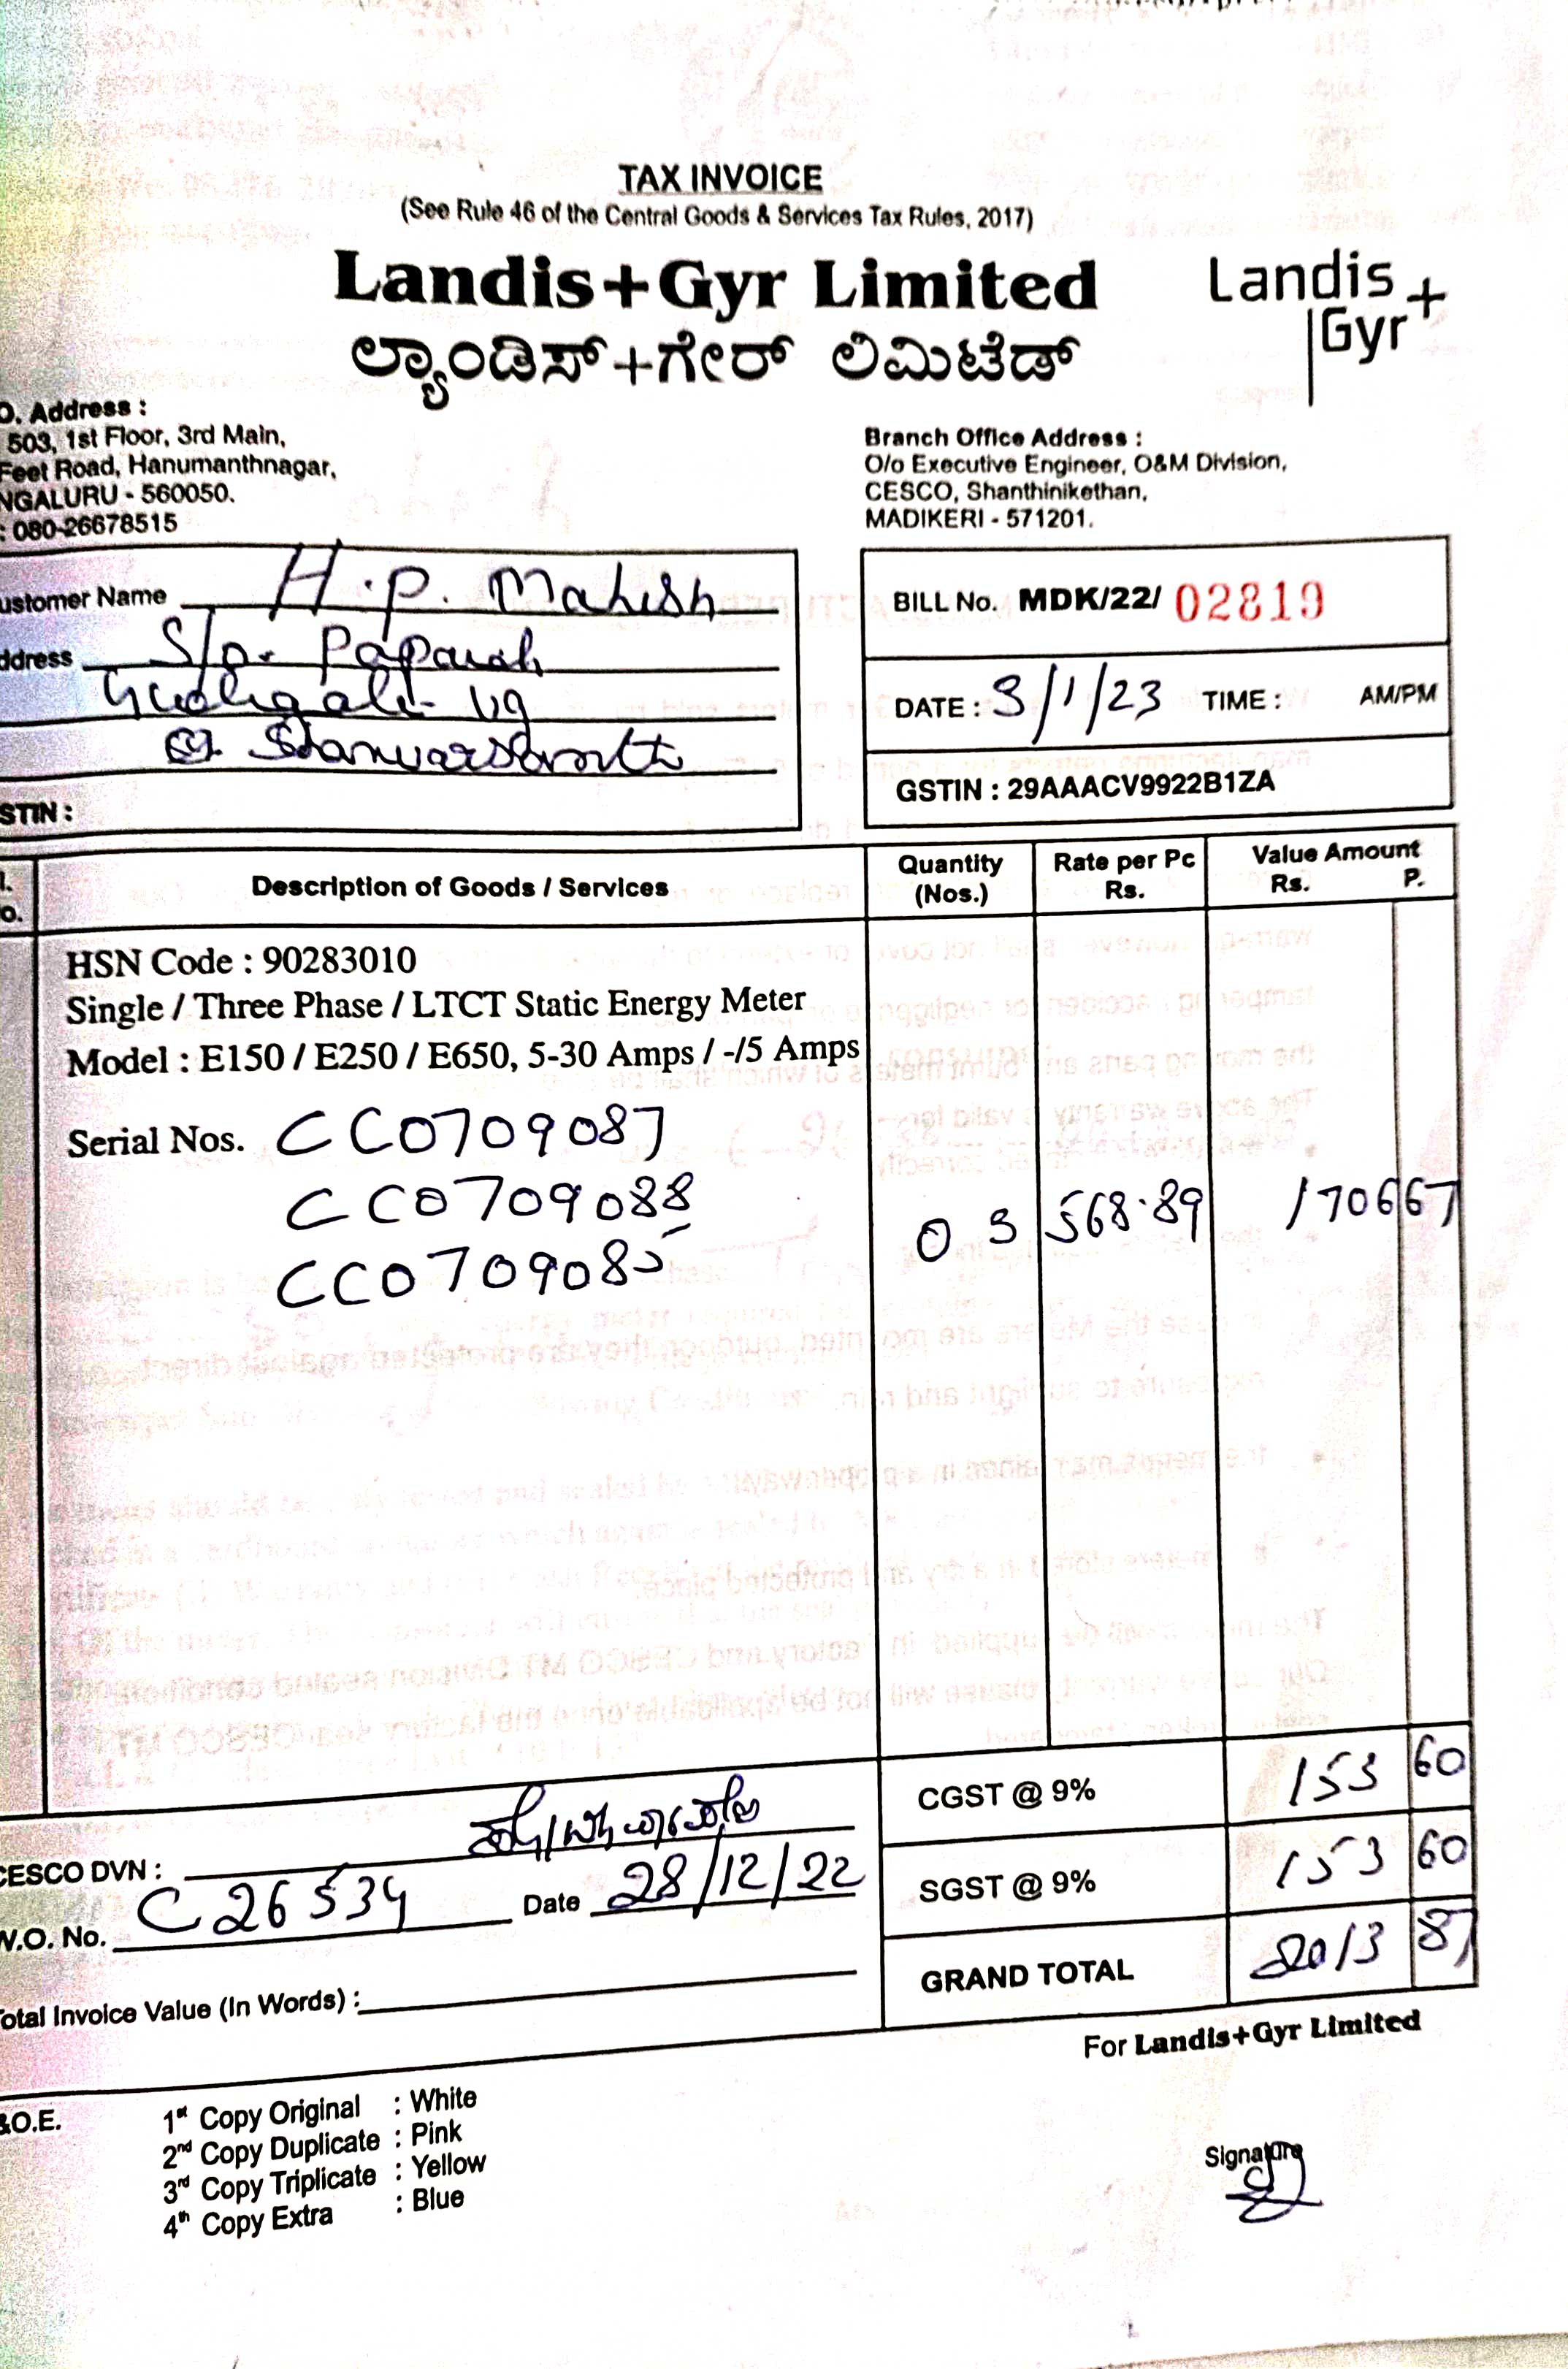 TAX INVOICE
(See Rule 46 of the Central Goods & Services Tax Rules, 2017)
Landis+Gyr Limited
ಲ್ಯಾಂಡಿಸ್+ಗೇರ್ ಲಿಮಿಟೆಡ್
Landis+
Gyr
O. Address :
503, 1st Floor, 3rd Main,
Feet Road, Hanumanthnagar,
NGALURU - 560050.
: 080-26678515
Branch Office Address :
O/o Executive Engineer, O&M Division,
CESCO, Shanthinikethan,
MADIKERI - 571201.
ustomer Name H.P. Mahesh
ddress S/o.
STIN :
BILL No. MDK/22/ 02819
DATE : 3/1/23 TIME : AM/PM
GSTIN : 29AAACV9922B1ZA
l. o. Description of Goods / Services Quantity (Nos.) Rate per Pc Rs. Value Amount Rs. P.
HSN Code : 90283010
Single / Three Phase / LTCT Static Energy Meter
Model : E150 / E250 / E650, 5-30 Amps / -/5 Amps
Serial Nos. CC0709087
CC0709088
CC0709085
03 568.89 1706 67
CGST @ 9% 153 60
SGST @ 9% 153 60
GRAND TOTAL 2013 87
CESCO DVN :
W.O. No. C26534 Date 28/12/22
otal Invoice Value (In Words) :
For Landis+Gyr Limited
&O.E.
1st Copy Original : White
2nd Copy Duplicate : Pink
3rd Copy Triplicate : Yellow
4th Copy Extra : Blue
Signature